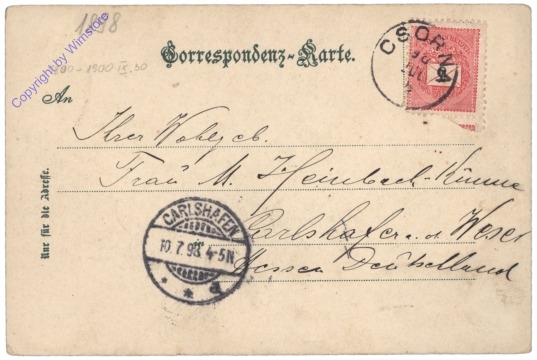 1898
Copyright by Wimstore
Correspondenz-Karte.
CSORNA
98
An
Ihrer Wohlgeb.
Frau M. Heinbach-Kümme
Carlshafen a. d. Weser
Hessen Deutschland
Nur für die Adresse.
CARLSHAFEN
10.7.98 4-5N
* * a